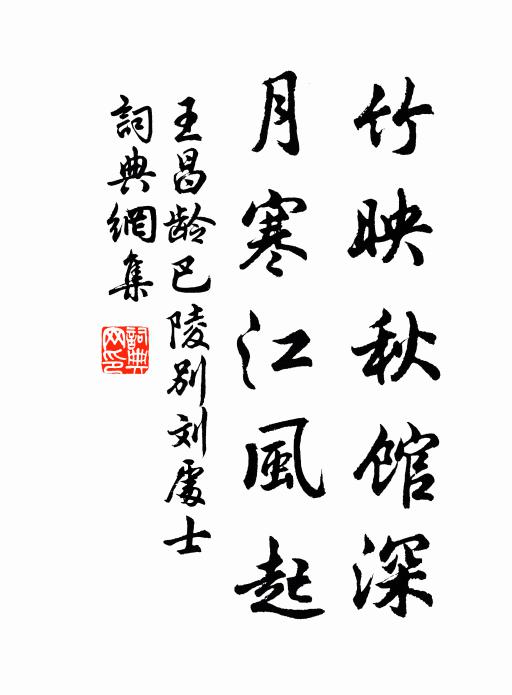 竹映秋館深
月寒江風起
王昌龄巴陵别刘處士
詞典網集
詞典網印